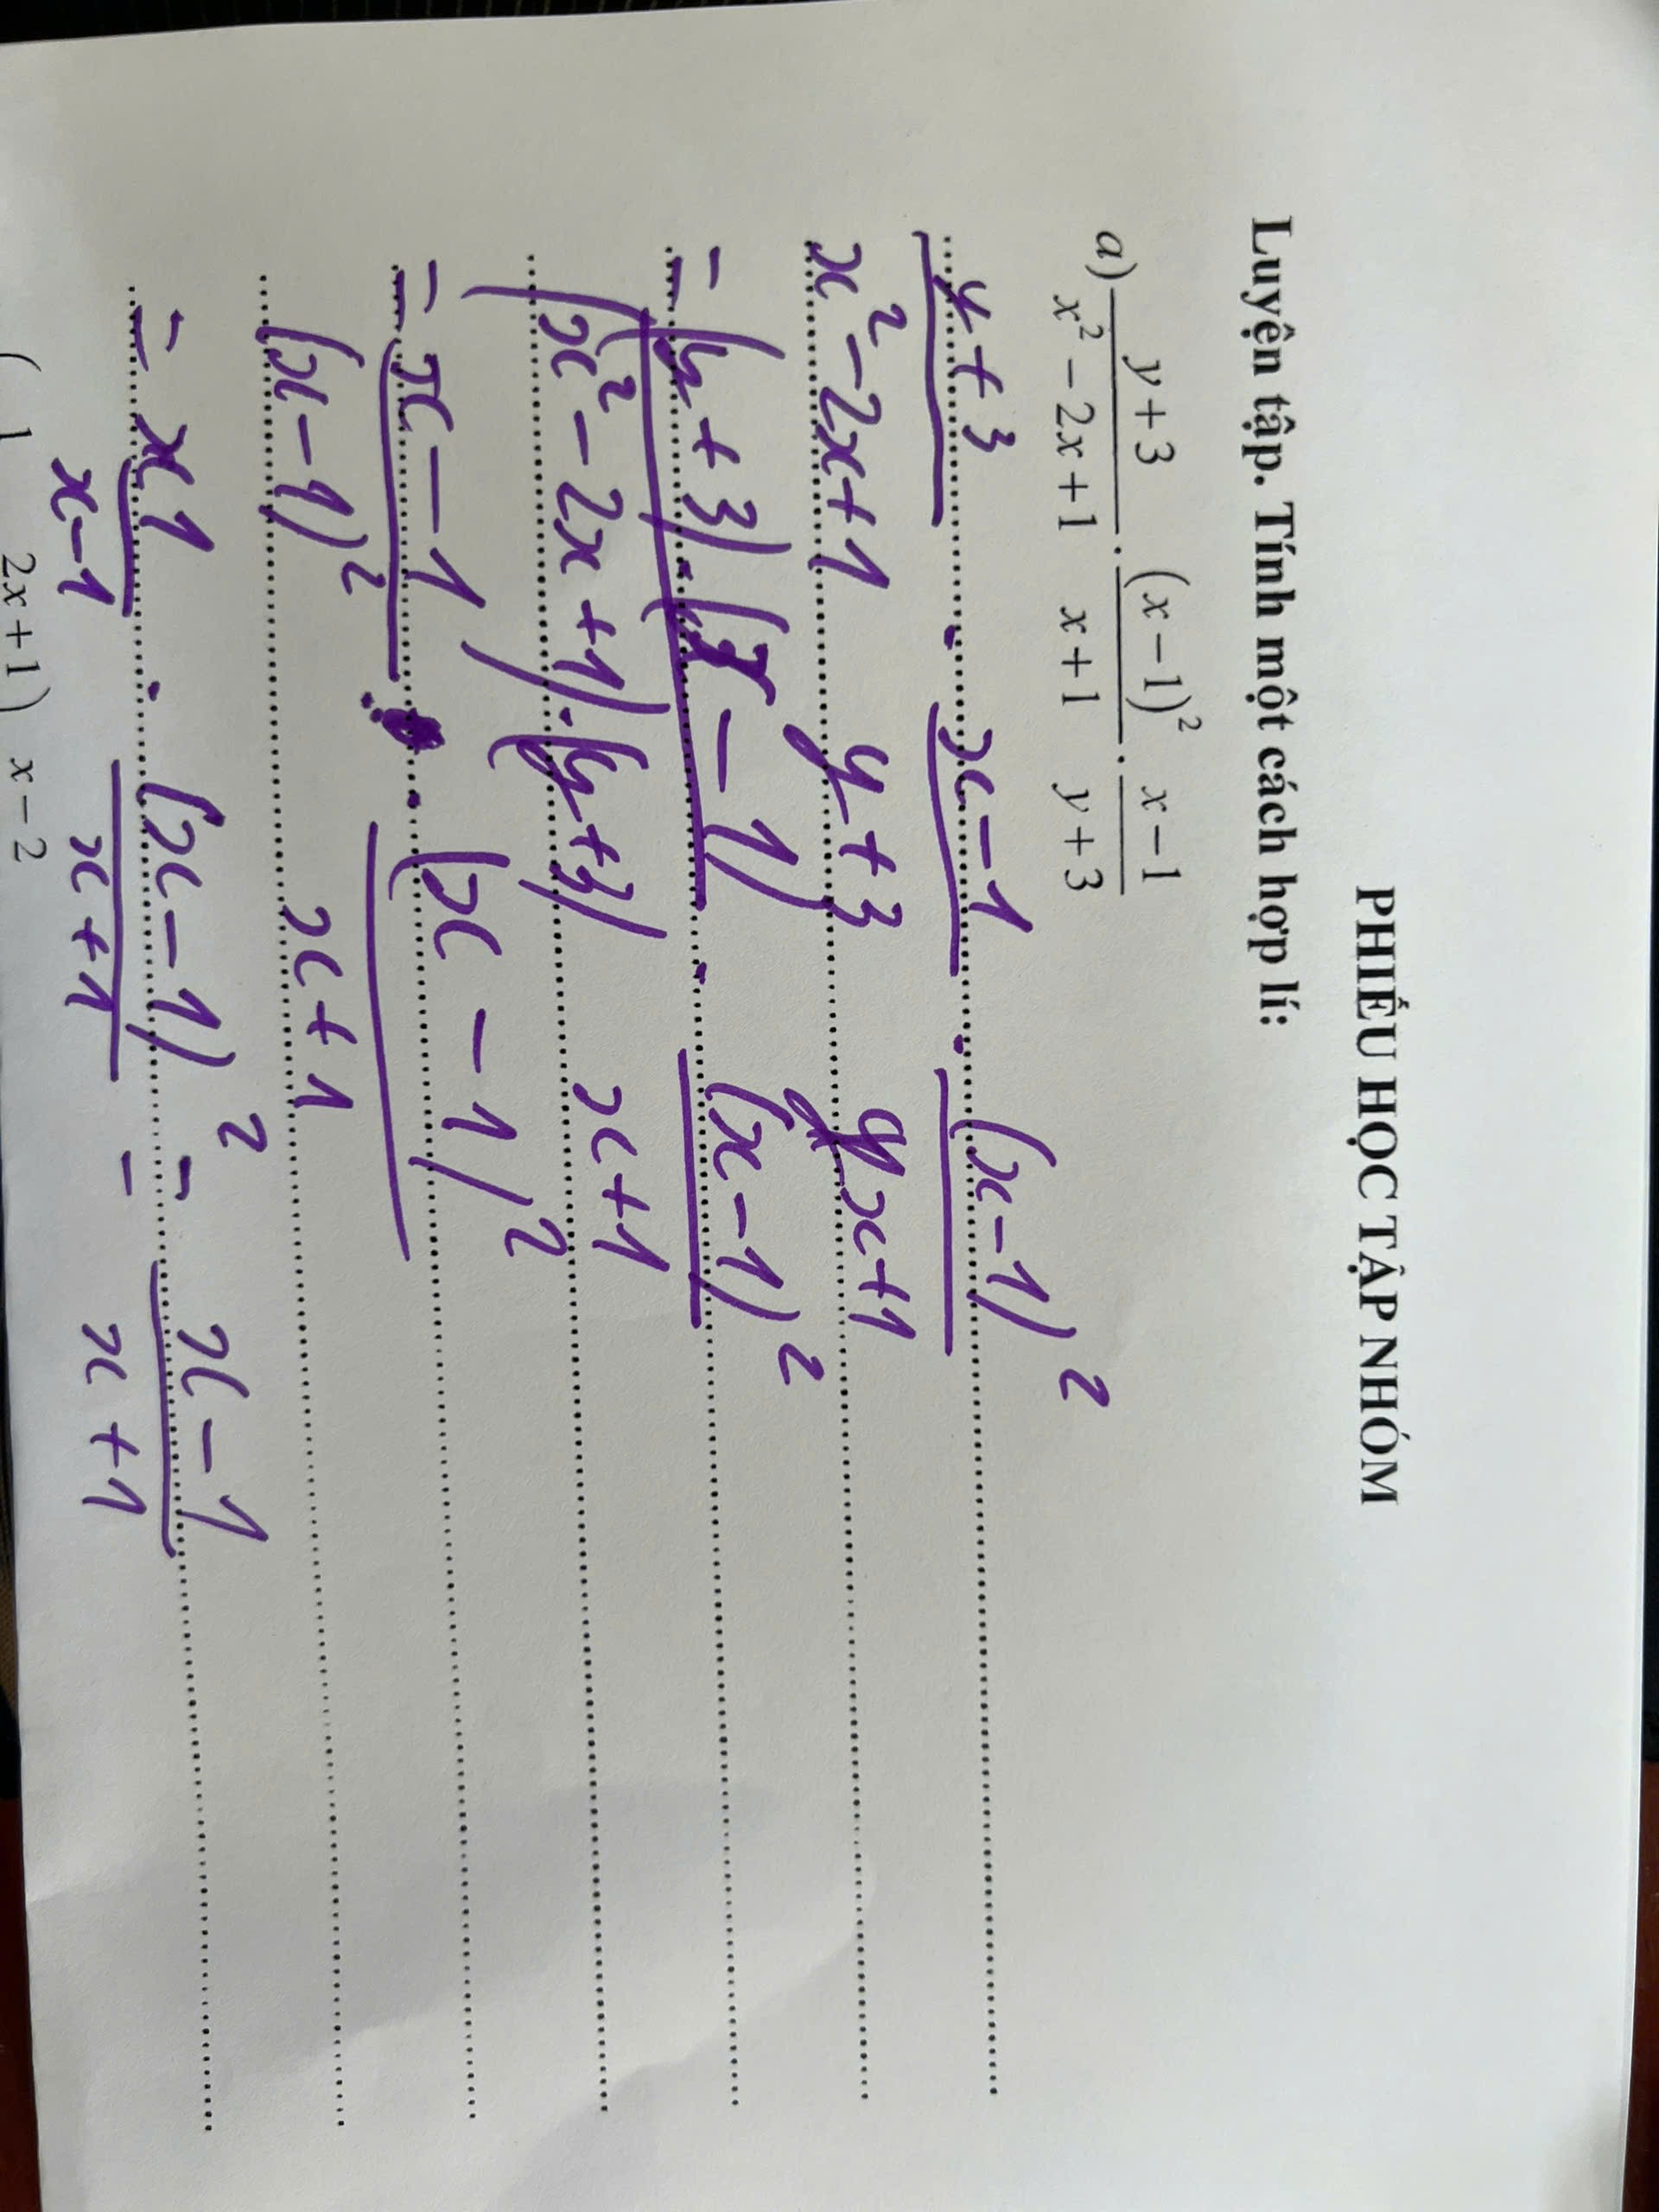 PHIẾU HỌC TẬP NHÓM
Luyện tập. Tính một cách hợp lí:
a) \frac{y+3}{x^2-2x+1} \cdot \frac{(x-1)^2}{x+1} \cdot \frac{x-1}{y+3}
\frac{y+3}{x^2-2x+1} \cdot \frac{x-1}{y+3} \cdot \frac{(x-1)^2}{x+1}
= \frac{(y+3) \cdot (x-1)}{(x^2-2x+1) \cdot (y+3)} \cdot \frac{(x-1)^2}{x+1}
= \frac{x-1}{(x-1)^2} \cdot \frac{(x-1)^2}{x+1}
= \frac{1}{x-1} \cdot \frac{(x-1)^2}{x+1} = \frac{x-1}{x+1}
( 1 2x+1 ) x-2